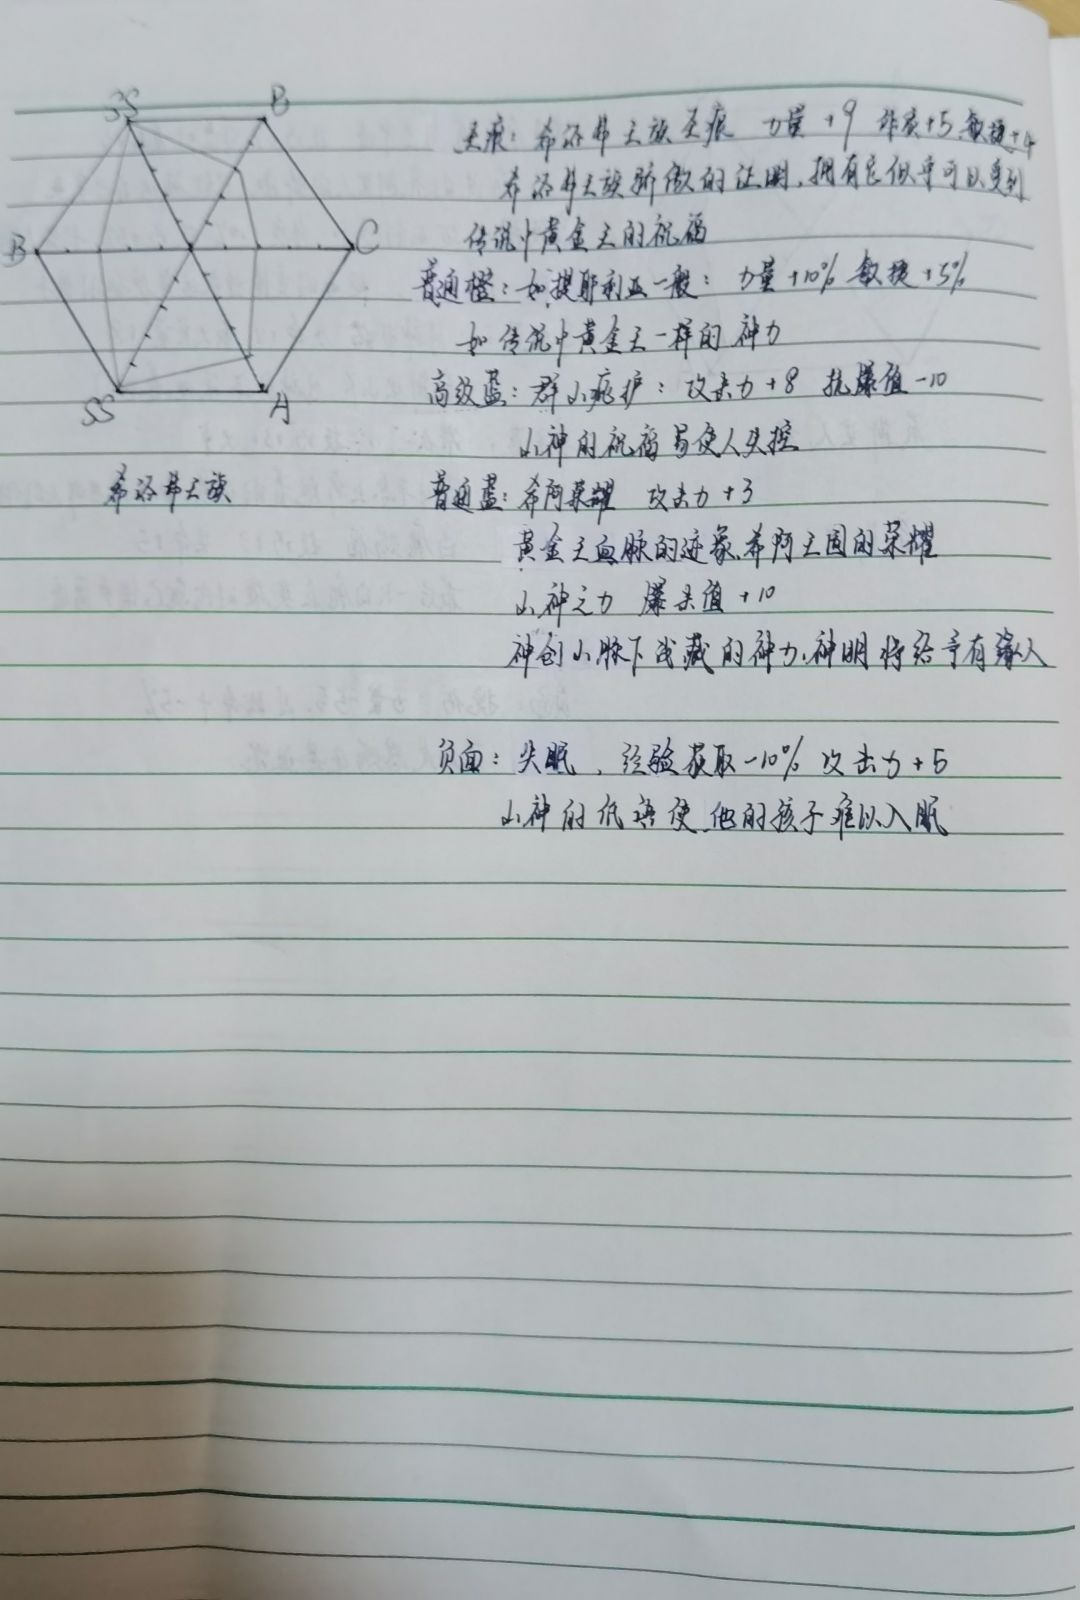 SS
B
B
C
SS
A
希洛弗王族
圣痕：希洛弗王族圣痕 力量+9 体质+5 敏捷+4
希洛弗王族骄傲的证明，拥有它似乎可以受到
传说中黄金王的祝福
普通橙：如提耶利亚一般：力量+10% 敏捷+5%
如传说中黄金王一样的神力
高级蓝：群山庇护：攻击力+8 抗爆值-10
山神的祝福易使人失控
普通蓝：希阿荣耀 攻击力+3
黄金王血脉的迹象，希阿王国的荣耀
山神之力 爆杀值+10
神创山脉下 藏的神力，神明将给予有缘人
负面：失眠，经验获取-10% 攻击力+5
山神的低语使他的孩子难以入眠